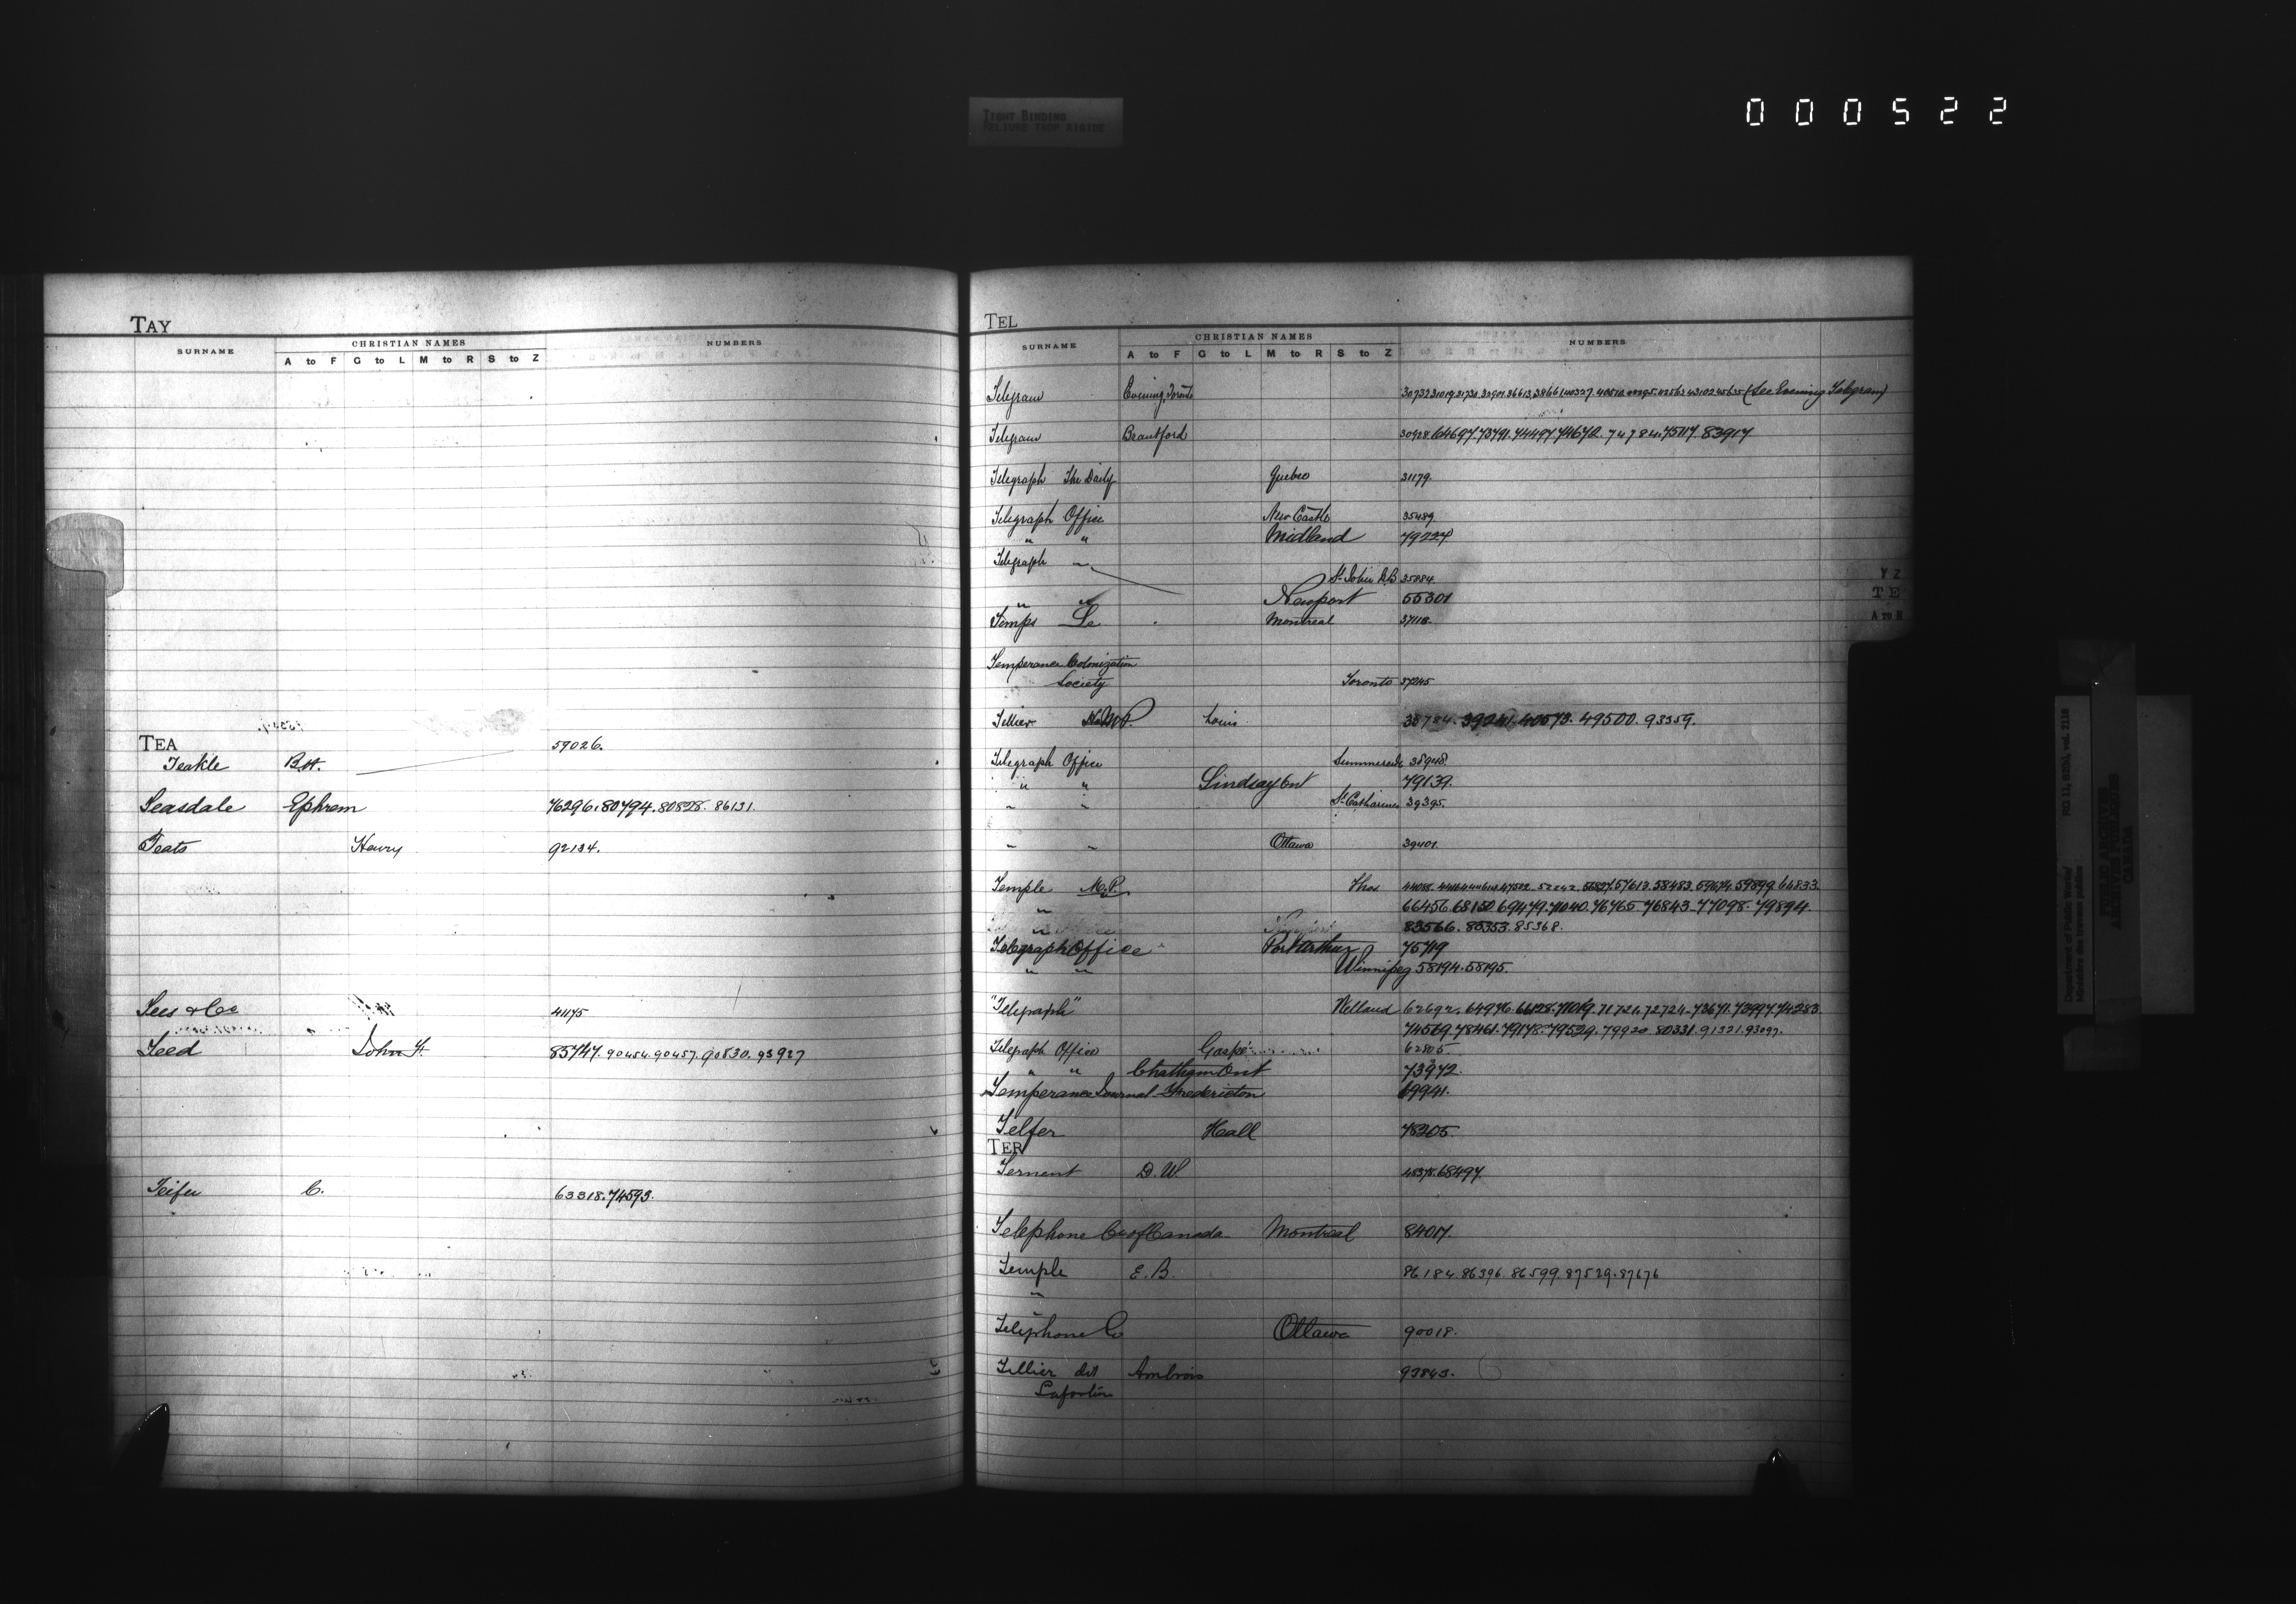 000522
TIGHT BINDING
RELIURE TROP RIGIDE
TAY
SURNAME CHRISTIAN NAMES NUMBERS
A to F G to L M to R S to Z
TEA 59026.
Teakle B.H.
Teasdale Ephrem 76296.80794.80828.86131.
Teats Henry 92134.
Tees & Co 41175
Teed John F. 85747.90454.90457.90830.93927
Teifer C. 63318.74593.
TEL
SURNAME CHRISTIAN NAMES NUMBERS
A to F G to L M to R S to Z
Telegram Evening, Toronto (See Evening Telegram)
Telegram Brantford 30928.64697.73791.74497.74672.74784.75117.83917
Telegraph The Daily Quebec 31179.
Telegraph Office New Castle 35489
" " Midland 79224
Telegraph "
St John N.B 35884.
" " Newport 55301
Temps Le Montreal 37118.
Temperance Colonization
Society Toronto 37245
Tellier M.P. Louis 38784.39241.40573.49500.93359.
Telegraph Office Summerside 38948.
" " Lindsay Ont 79139.
" " St Catharines 39395.
" " Ottawa 39401.
Temple M.P. Thos 57613.58483.59674.59899.64833
" 66456.68150.69479.71040.76765.76843.77098.79894.
" 83566.85353.85368.
Telegraph Office Port Arthur 75719
" " Winnipeg 58194.58195.
"Telegraph" Welland 62692.64976.66128.71019.71721.72724.73671.73997.74283.
74569.78461.79178.79529.79920.80331.91321.93097.
Telegraph Office Gaspé 62805.
" " Chatham Ont 73972.
Temperance Journal Fredericton 69941.
Telfer Hall 78305.
TER
Ternent D.W. 48378.68497.
Telephone Co of Canada Montreal 84017.
Temple E.B. 86184.86396.86599.87529.87676
"
Telephone Co Ottawa 90018.
Tellier dit Ambrois 93843.
Lafortune
Y Z
T E
A TO R
Department of Public Works/
Ministère des travaux publics
RG 11, B2(b), vol. 2118
CANADA